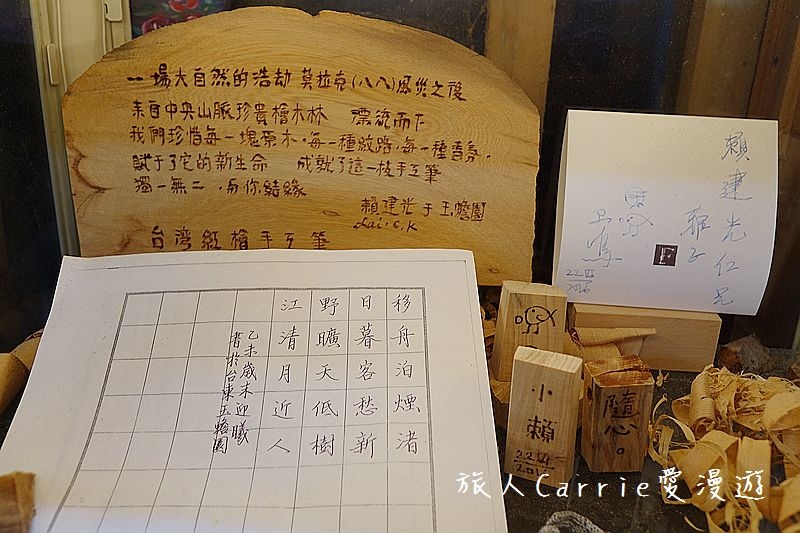 一場大自然的浩劫 莫拉克(八八)風災之後
來自中央山脈珍貴檜木林 漂流而下
我們珍惜每一塊原木,每一種紋路,每一種香氛,
賦予了它的新生命 成就了這一枝手工筆
獨一無二,與你結緣
賴建光于玉蟾園
Lai.C.K
台灣紅檜手工筆
賴建光仁兄
雅正
22 IV
2016
移舟泊煙渚
日暮客愁新
野曠天低樹
江清月近人
乙未歲末迎曦
書於台東玉蟾園
小賴
22 IV
2016
隨心。
旅人Carrie愛漫遊